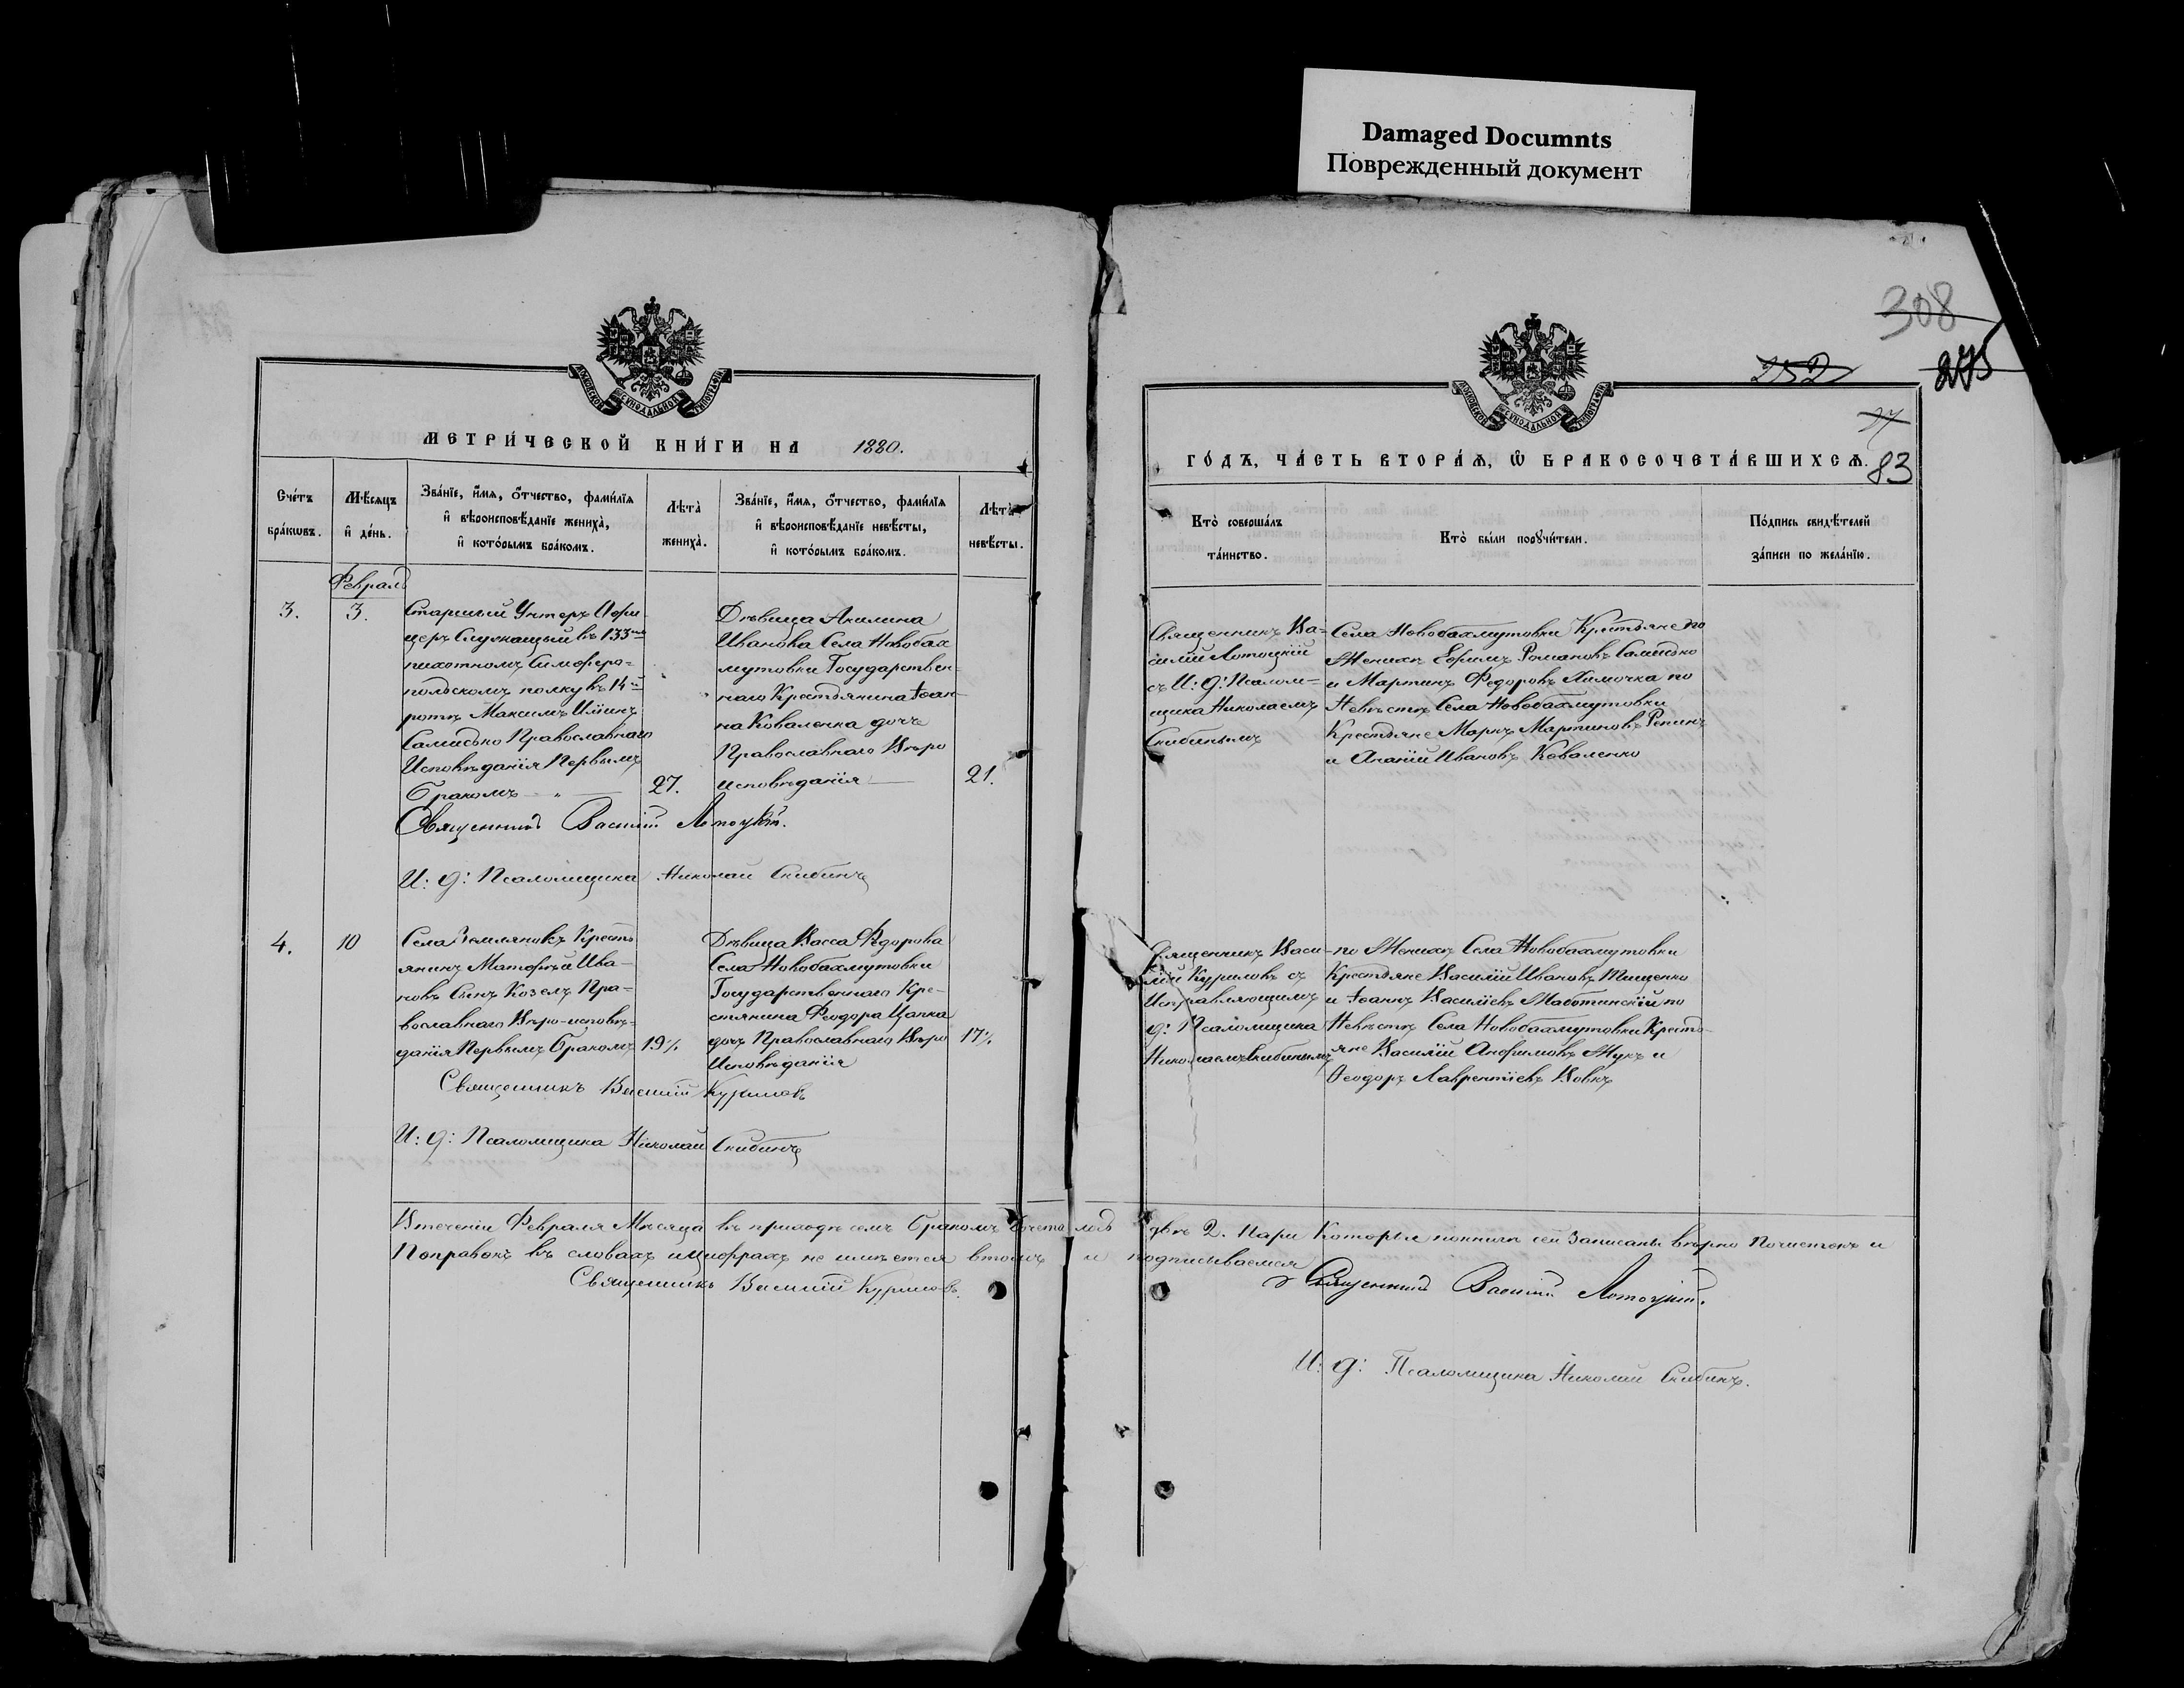 Damaged Documnts
Поврежденный документ
308
252
275
МЕТРИ́ЧЕСКОЙ КНИ́ГИ НА 1880.
ГО́ДЪ, ЧА́СТЬ ВТОРА́Я, Ѡ БРАКОСОЧЕТА́ВШИХСЯ.
83
Сче́тъ бра́кѡвъ.
Мѣ́сяцъ и҆ де́нь.
Зва́нїе, и҆́мя, ѻ҆́тчество, фами́лїя и҆ вѣроисповѣ́данїе жениха̀, и҆ кото́рымъ бра́комъ.
Лѣ́та̀ жениха̀.
Зва́нїе, и҆́мя, ѻ҆́тчество, фами́лїя и҆ вѣроисповѣ́данїе невѣ́сты, и҆ кото́рымъ бра́комъ.
Лѣ́та̀ невѣ́сты.
Кто̀ соверша́лъ та́инство.
Кто̀ бы́ли порꙋчи́тели.
По́дпись свидѣ́телей за́писи по жела́нїю.
Февраль
3.
3.
Старшій Унтеръ Офи
церъ Служащый въ 133мъ
пихотномъ Симферо=
польскомъ полку въ 14й
ротѣ Максимъ Ильинъ
Самисько Православнаго
Исповѣданія Первымъ
Бракомъ
27.
Дѣвица Акилина
Иванова Села Новобах
мутовки Государствен-
наго Крестьянина Іоан-
на Коваленка дочь
Православнаго Вѣро
исповѣданія
21.
Священникъ Ва=
силій Лотоцкій
съ И: д: Псалом=
щика Николаемъ
Скибинымъ
Села Новобахмутовки Крестьяне по
Женихѣ Ефимъ Романовъ Самисько
и Мартинъ Федоровъ Химочка по
Невѣстѣ Села Новобахмутовки
Крестьяне Маркъ Мартиновъ Репинъ
и Ананій Ивановъ Коваленко
Священникъ Василій Лотоцкій.
И: д: Псаломщика Николай Скибинъ
4.
10
Села Земляновъ Кресть
янинъ Матофій Ива-
новъ Сынъ Козелъ Пра-
вославнаго Вѣро-исповѣ-
данія Первымъ Бракомъ
19½
Дѣвица Васса Федорова
Села Новобахмутовки
Государственнаго Кре-
стянина Феодора Цапка
дочь Православнаго Вѣро
Исповѣданія
17½
Священникъ Васи-
лій Куриловъ съ
Исправляющимъ
д: Псаломщика
Николаемъ Скибинымъ
по Женихѣ Села Новобахмутовки
Крестьяне Василій Ивановъ Тищенко
и Іоаннъ Василіевъ Маботинскій по
Невѣстѣ Села Новобахмутовки Кресть-
яне Василій Анфимовъ Жукъ и
Феодоръ Лаврентіевъ Вовкъ
Священникъ Василій Куриловъ
И: д: Псаломщика Николай Скибинъ
Втеченіи Февраля Мѣсяца въ приходѣ семъ Бракомъ Сочеталось двѣ 2. Пари Которые покниги сей Записаны вѣрно Почистокъ и
Поправокъ въ словахъ и цифрахъ не имѣется втомъ и подписываемся
Священникъ Василій Куриловъ.
Священникъ Василій Лотоцкій.
И: д: Псаломщика Николай Скибинъ.